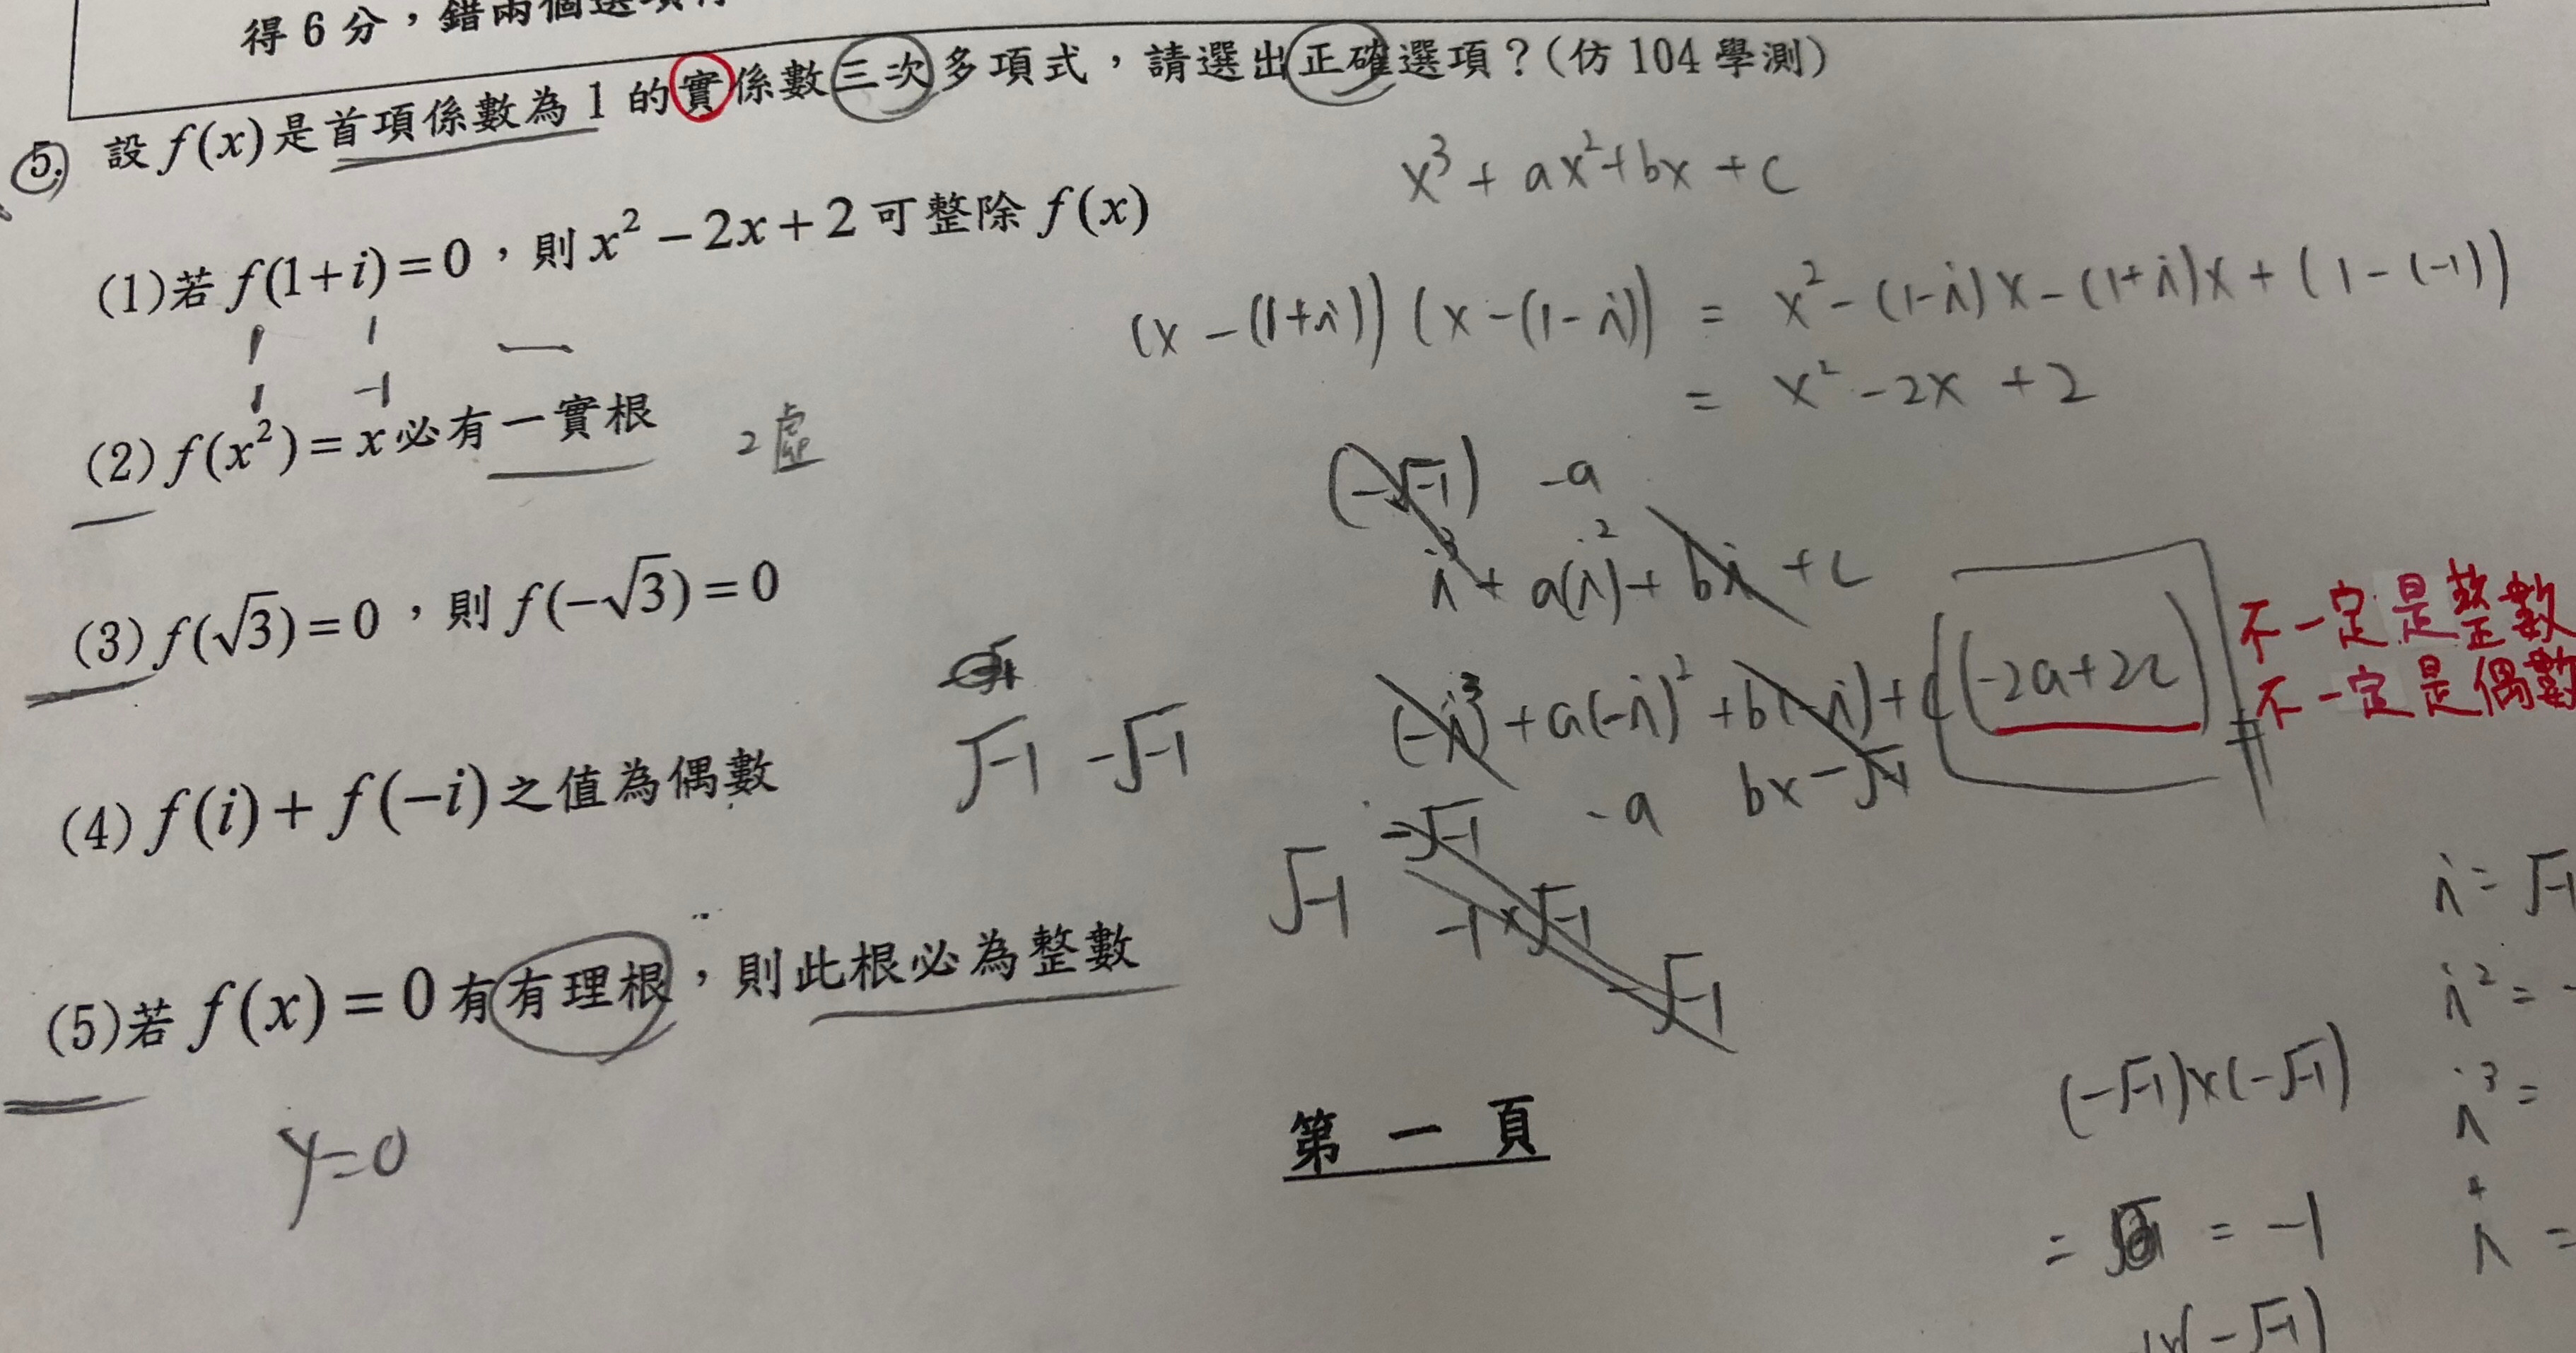 得6分，錯兩個選項
5. 設 f(x) 是首項係數為 1 的實係數三次多項式，請選出正確選項？(仿 104 學測)
x³ + ax² + bx + c
(1)若 f(1+i)=0，則 x² − 2x + 2 可整除 f(x)
(x − (1+i)) (x − (1−i)) = x² − (1−i)x − (1+i)x + (1−(−1))
= x² − 2x + 2
1 1 —
1 −1
(2) f(x²) = x 必有一實根 2虛
(−√−1) −a
i³ + a(i)² + bi + c
(3) f(√3)=0，則 f(−√3)=0
(−i)³ + a(−i)² + b(−i) + c (−2a+2c)
不一定是整數
不一定是偶數
√−1 −√−1
−√−1 −a bx−√−1
(4) f(i) + f(−i) 之值為偶數
√−1 −1×√−1
−√−1
(5)若 f(x) = 0 有有理根，則此根必為整數
y=0
i = √−1
i² = -
i³ =
i⁴ =
(−√−1)×(−√−1)
= = −1
(−√−1)
第一頁